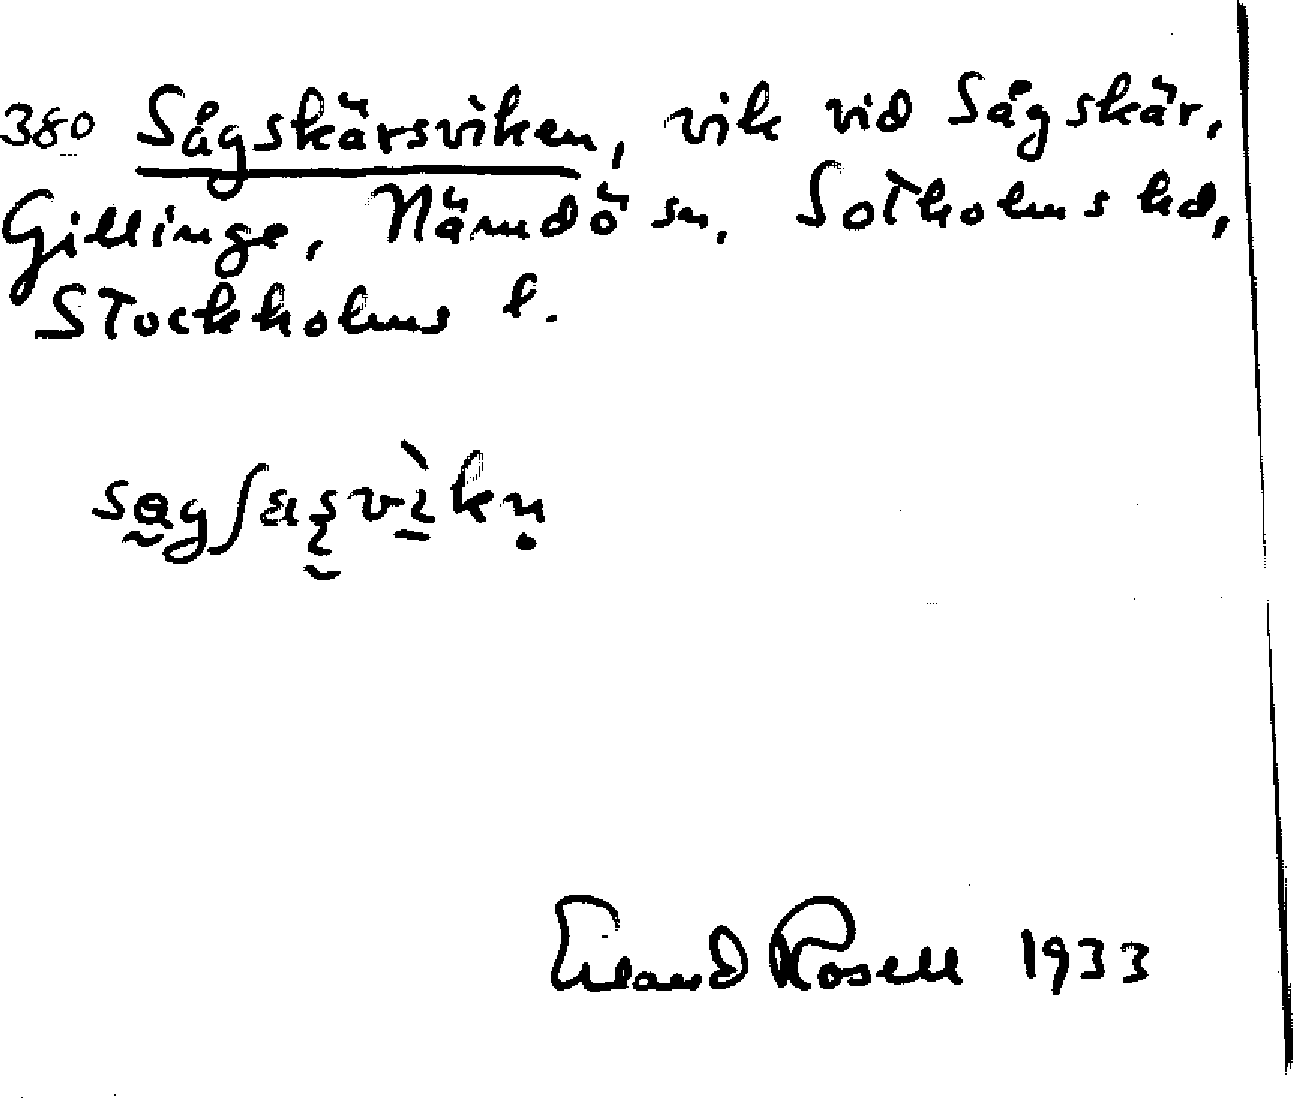 380 Sågskärsviken, vik vid Sågskär,
Gillinge, Nämdö sn, Sotholms hd,
Stockholms l.
Erland Rosell 1933